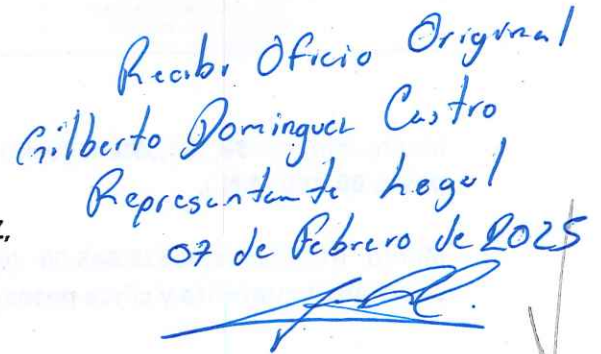 Recibi Oficio Original
Gilberto Dominguez Castro
Representante Legal
07 de Febrero de 2025